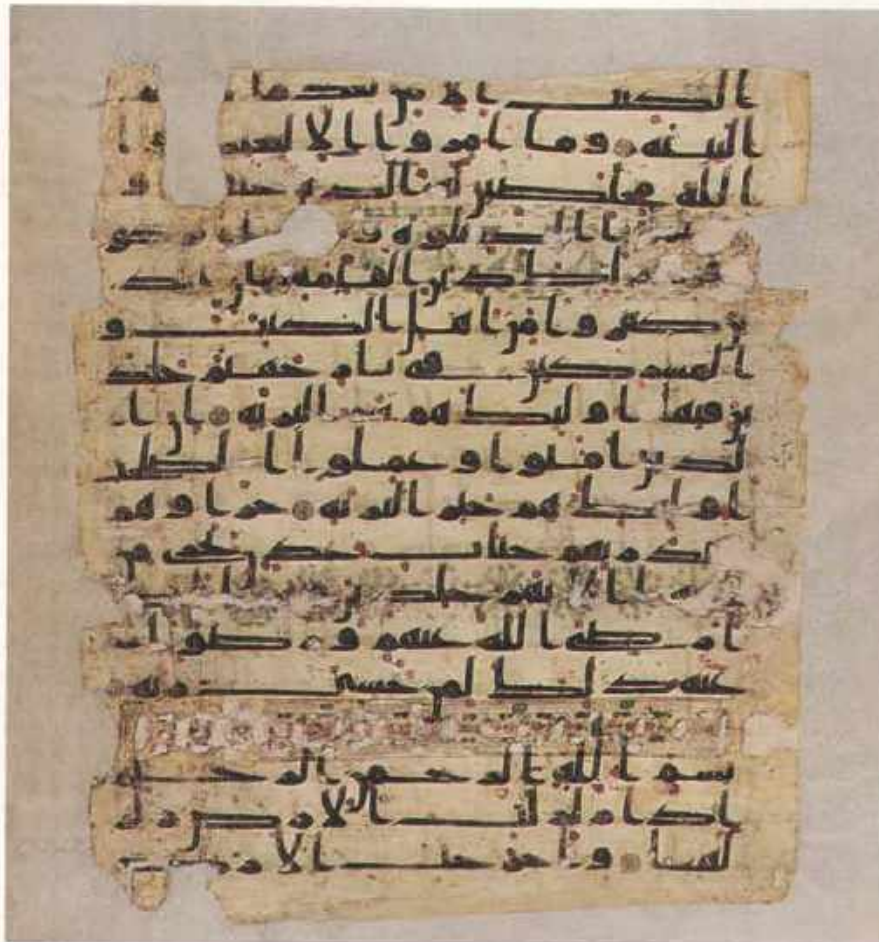 الكتب الا من بعد ما
البينه وما امروا الا ليعبدوا
الله مخلصين له الدين حنفا و
الصلوه و الزكو
ه و ذلك دين القيمه ان الذ
ين كفروا من اهل الكتب و
المشركين في نار جهنم خلد
ين فيها اوليك هم شر البريه ان ا
لذين امنوا وعملوا الصلحت
اوليك هم خير البريه جزاوهم
عند ربهم جنت عدن تجري من
الانهر خلدين فيها ابدا
رضي الله عنهم ورضوا
عنه ذلك لمن خشي ربه
بسم الله الرحمن الرحيم
اذا زلزلت الارض زلز
لها واخرجت الارض